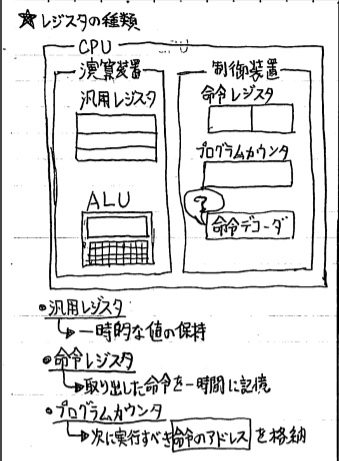 ★レジスタの種類
CPU
演算装置
汎用レジスタ
ALU
制御装置
命令レジスタ
プログラムカウンタ
?
命令デコーダ
•汎用レジスタ
→一時的な値の保持
•命令レジスタ
→取り出した命令を一時間に記憶
•プログラムカウンタ
→次に実行すべき命令のアドレスを格納